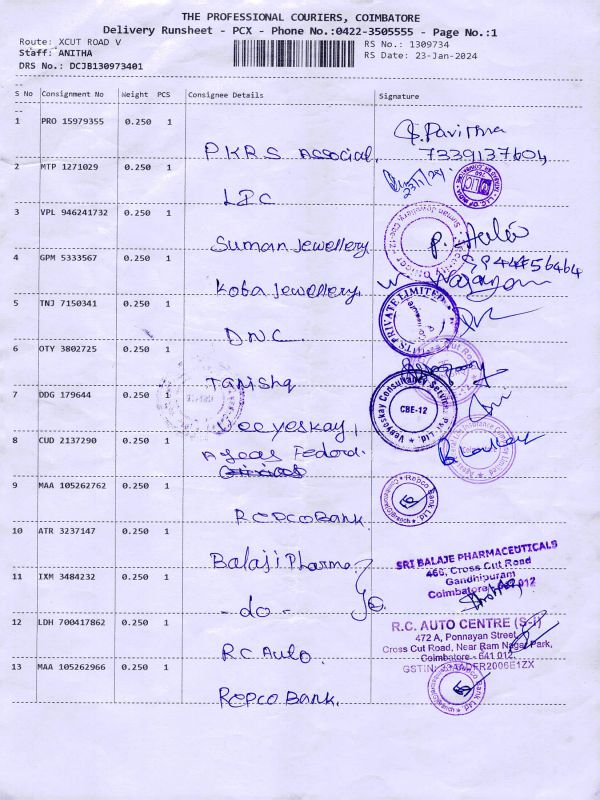 THE PROFESSIONAL COURIERS, COIMBATORE
Delivery Runsheet - PCX - Phone No.:0422-3505555 - Page No.:1
Route: XCUT ROAD V
RS No.: 1309734
Staff: ANITHA
RS Date: 23-Jan-2024
DRS No.: DCJB130973401
S No Consignment No Weight PCS Consignee Details Signature
1 PRO 15979355 0.250 1
PKRS Associat. 7339137604
2 MTP 1271029 0.250 1
LIC
3 VPL 946241732 0.250 1
Suman Jewellery
4 GPM 5333567 0.250 1
9944456464
Koba Jewellery,
5 TNJ 7150341 0.250 1
DNC.
6 OTY 3802725 0.250 1
Tanishq
7 DDG 179644 0.250 1
Veeyeskay Consultancy Services Pvt. Ltd. CBE-12
Veeyeskay,
8 CUD 2137290 0.250 1
Ageas Federal.
9 MAA 105262762 0.250 1
Repco Bank Ltd
REPCO BANK
10 ATR 3237147 0.250 1
Balaji Pharma
SRI BALAJE PHARMACEUTICALS
466, Cross Cut Road
Gandhipuram
Coimbatore-641 012
11 IXM 3484232 0.250 1
- do -
12 LDH 700417862 0.250 1
R.C. AUTO CENTRE (S-I)
472 A, Ponnayan Street,
Cross Cut Road, Near Ram Nagar Park,
Coimbatore - 641 012.
RC Auto.
13 MAA 105262966 0.250 1
Repco Bank.